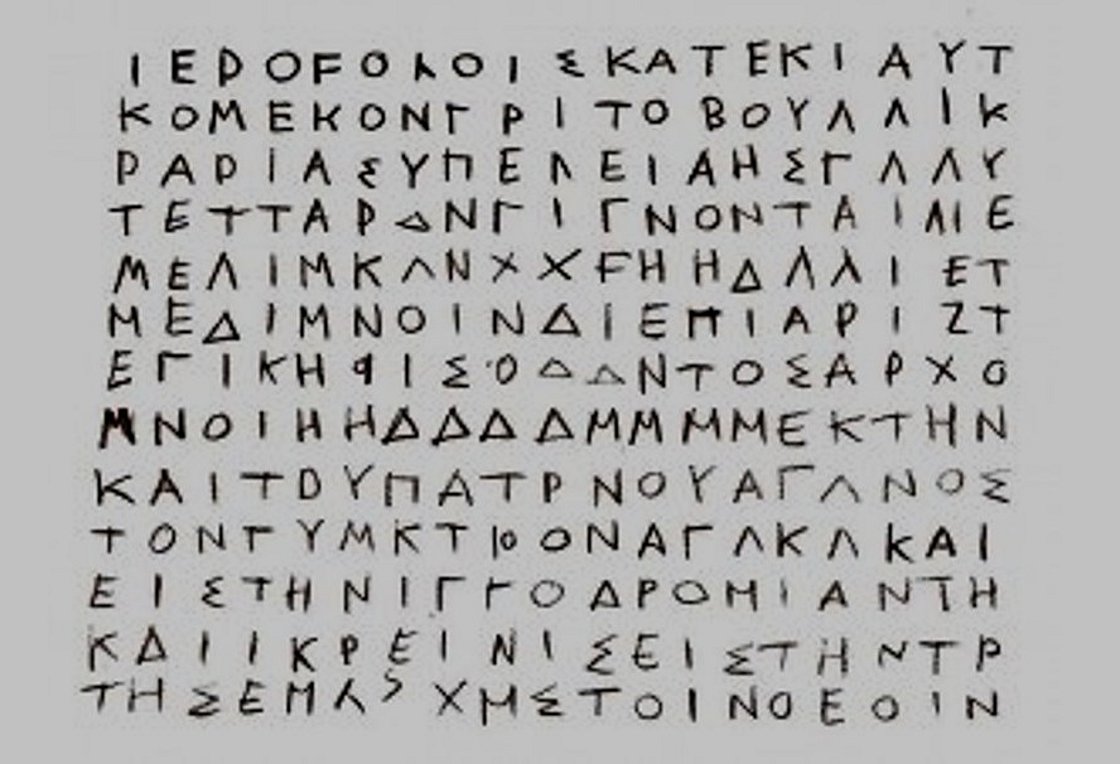 ΙΕΡΟΓΟΛΟΙΣΚΑΤΕΚΙΑΥΤ
ΚΟΜΕΚΟΝΓΡΙΤΟΒΟΥΛΛΙΚ
ΡΑΡΙΑΣΥΠΕΛΕΙΑΗΣΓΛΛΥ
ΤΕΤΤΑΡΔΝΓΙΓΝΟΝΤΑΙΛΙΕ
ΜΕΛΙΜΚΛΝΧΧϜΗΗΔΛΛΙΕΤ
ΜΕΔΙΜΝΟΙΝΔΙΕΠΙΑΡΙΖΤ
ΕΓΙΚΗΦΙΣΟΔΔΝΤΟΣΑΡΧΟ
ΜΝΟΙΗΗΔΔΔΔΜΜΜΜΕΚΤΗΝ
ΚΑΙΤΟΥΠΑΤΡΝΟΥΑΓΛΝΟΣ
ΤΟΝΓΥΜΚΤΙΟΟΝΑΓΛΚΛΚΑΙ
ΕΙΣΤΗΝΙΓΓΟΔΡΟΜΙΑΝΤΗ
ΚΔΙΙΚΡΕΙΝΙΣΕΙΣΤΗΝΤΡ
ΤΗΣΕΜΛΣΧΜΣΤΟΙΝΟΕΟΙΝ